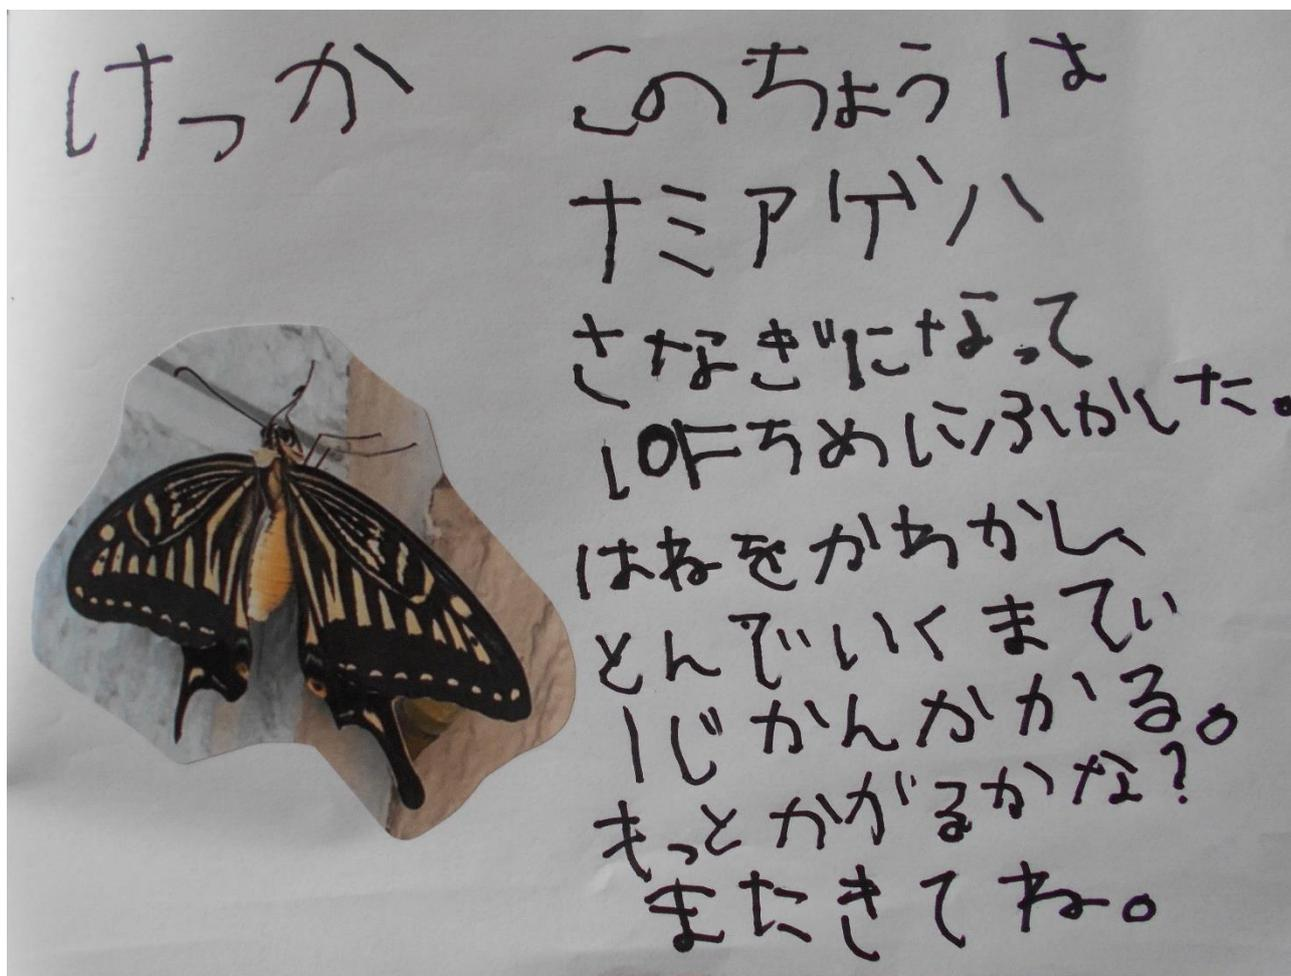 けっか
このちょうは
ナミアゲハ
さなぎになって
10にちめにふかした。
はねをかわかし、
とんでいくまでに
1じかんかかる。
もっとかがるかな?
またきてね。